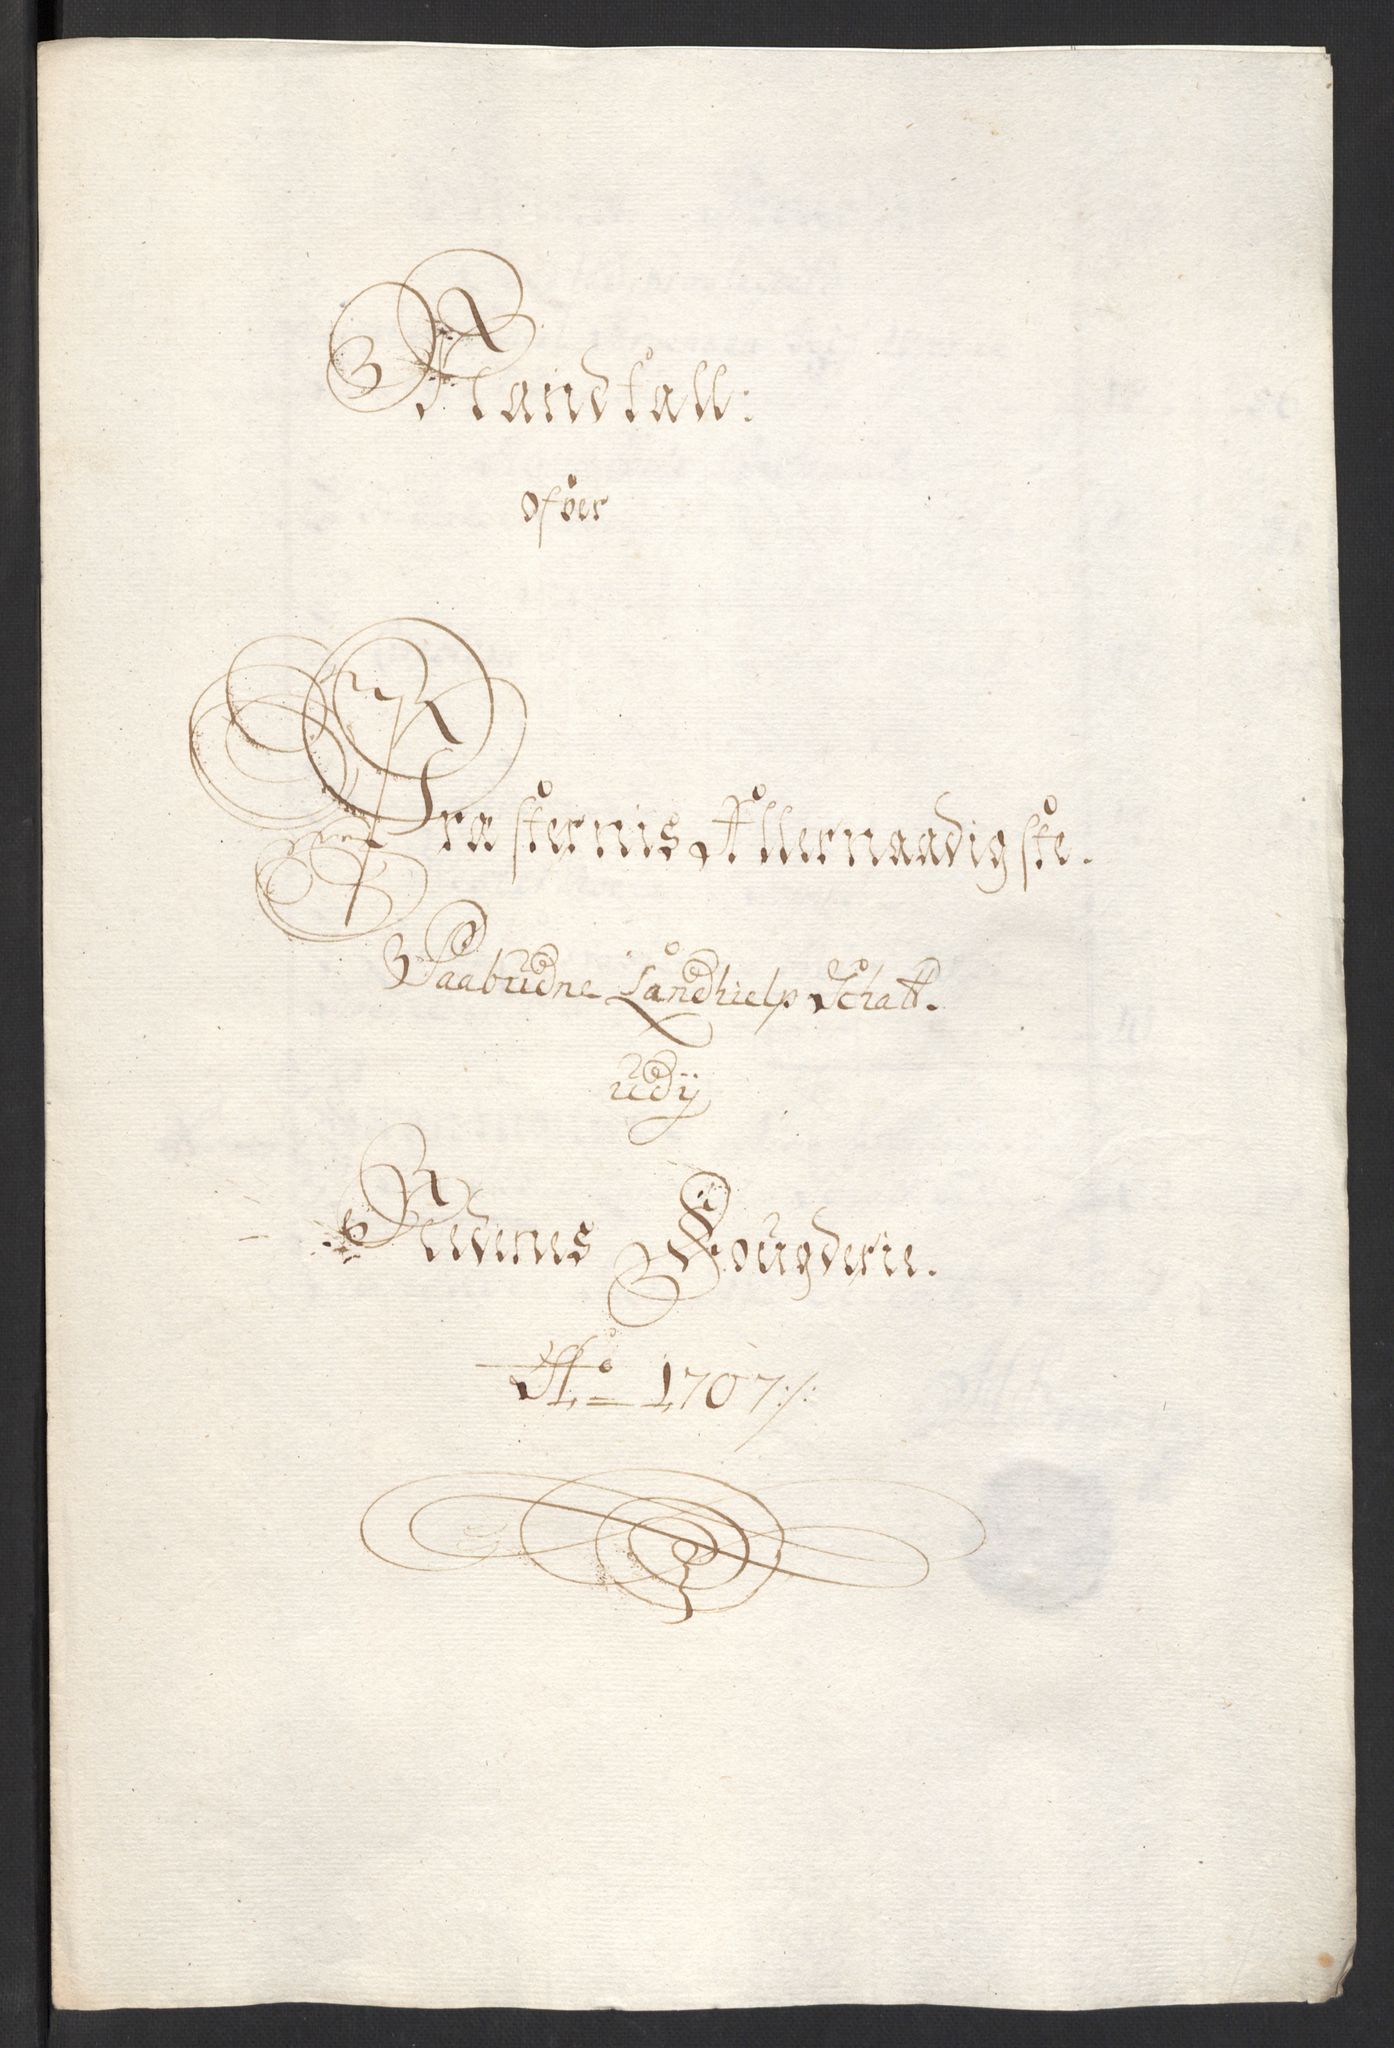 Mandtall:
ofver
Præsternis Allernaadigste.
Paabudne Landhielp Schatt.
udÿ
Nedenes Fougderie.
Ao 1707:/: